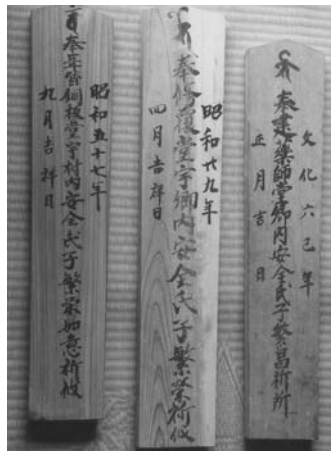 文化六己年
奉建薬師堂郷内安全氏子繁昌祈所
正月吉日
昭和廿九年
奉修復堂宇郷内安全氏子繁栄祈攸
四月吉祥日
昭和五十七年
奉葺替銅板堂宇村内安全氏子繁栄如意祈攸
九月吉祥日